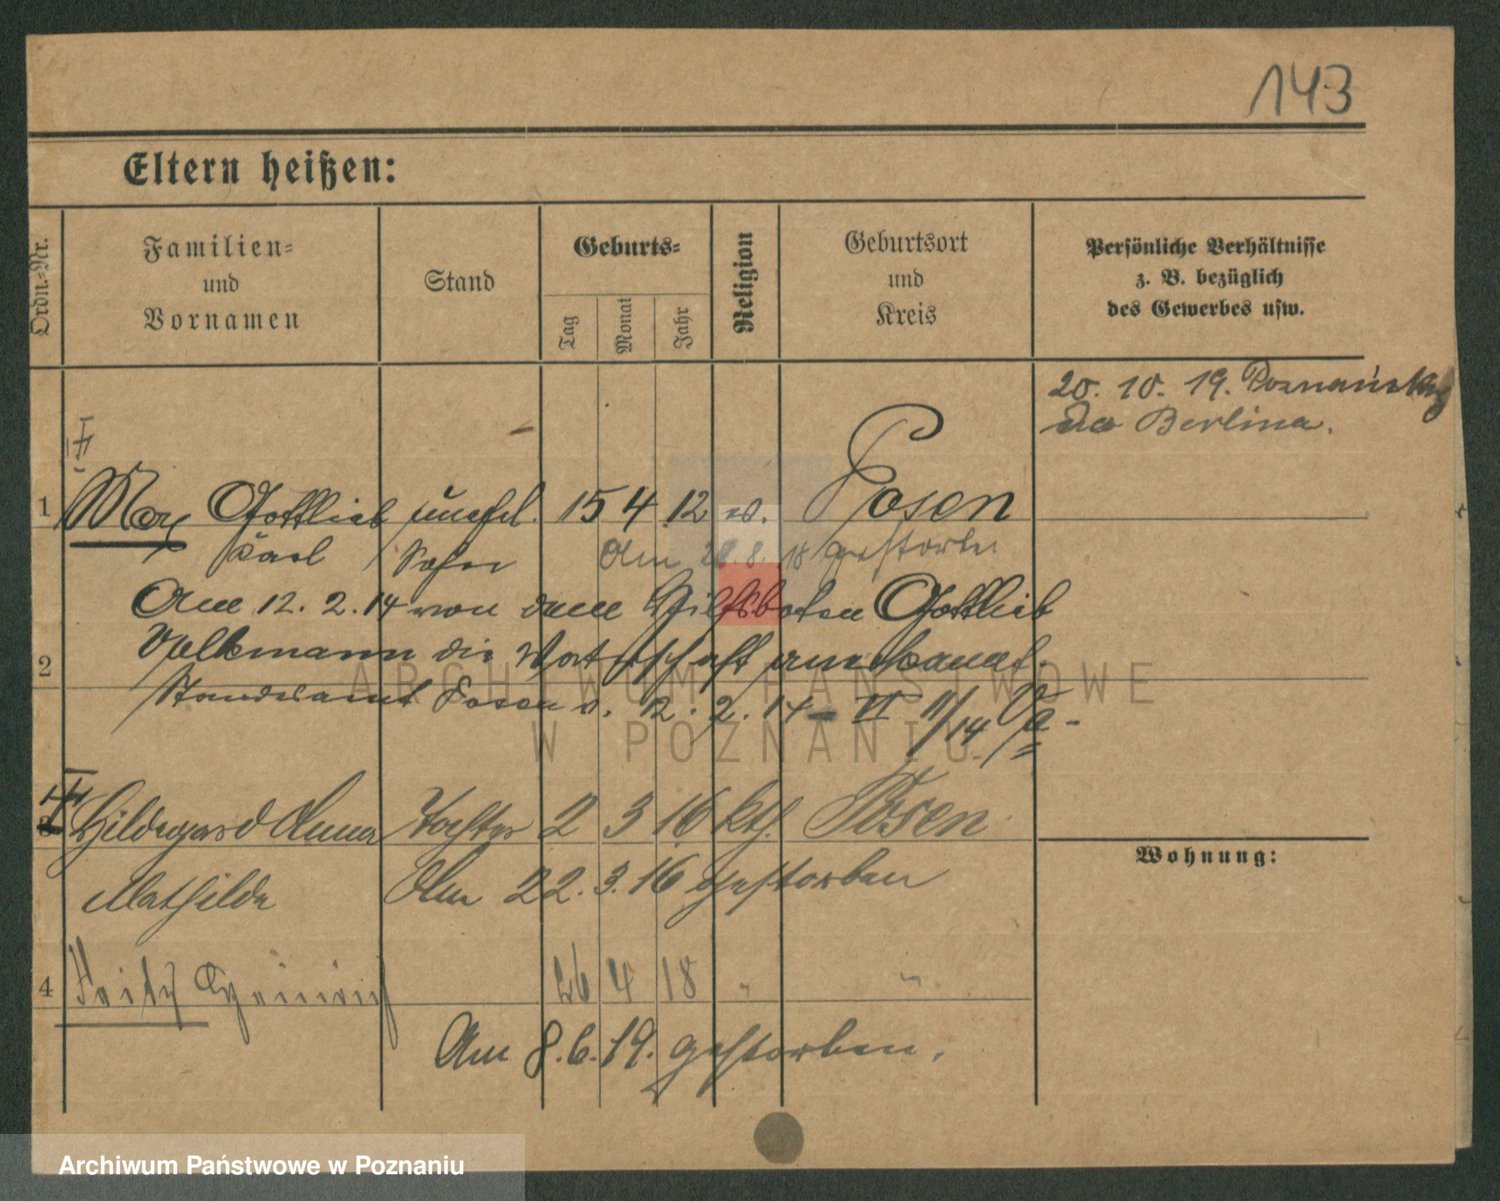 143
Eltern heißen:
Ordn.-Nr.
Familien-
und
Vornamen
Stand
Geburts-
Tag
Monat
Jahr
Religion
Geburtsort
und
Kreis
Persönliche Verhältnisse
z. B. bezüglich
des Gewerbes usw.
20. 10. 19.
do Berlina.
1 Max Gottlieb unehel. 15 4 12 ev. Posen
Karl Sohn Am 28. 8. 18 gestorben
Am 12. 2. 14 von dem Hilfsboten Gottlieb
2 Volkmann die Vaterschaft anerkannt.
Standesamt Posen v. 12. 2. 14 – VI 11/14
3 Hildegard Anna Tochter 2 3 16 kth. Posen
Mathilde Am 22. 3. 16 gestorben
Wohnung:
4 Fritz Heinrich 26 4 18 " "
Am 8. 6. 19. gestorben.
ARCHIWUM PAŃSTWOWE
W POZNANIU
Archiwum Państwowe w Poznaniu